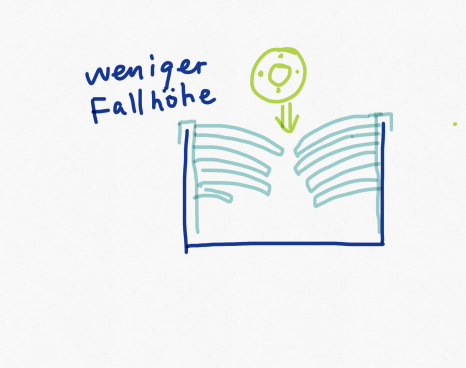 weniger
Fallhöhe